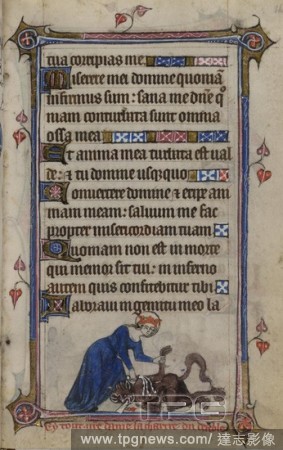 tua corripias me
Miserere mei domine quoniā
infirmus sum: sana me dn̄e q̄
niam conturbata sunt omnia
ossa mea
Et anima mea turbata est ual
de: & tu domine usq̄quo
Conuertere domine & eripe ani
mam meam: saluum me fac
propter misericordiam tuam
Quoniam non est in morte
qui memor sit tui: in inferno
autem quis confitebitur tibi
Laboraui in gemitu meo la
TPG
www.tpgnews.com/達志影像